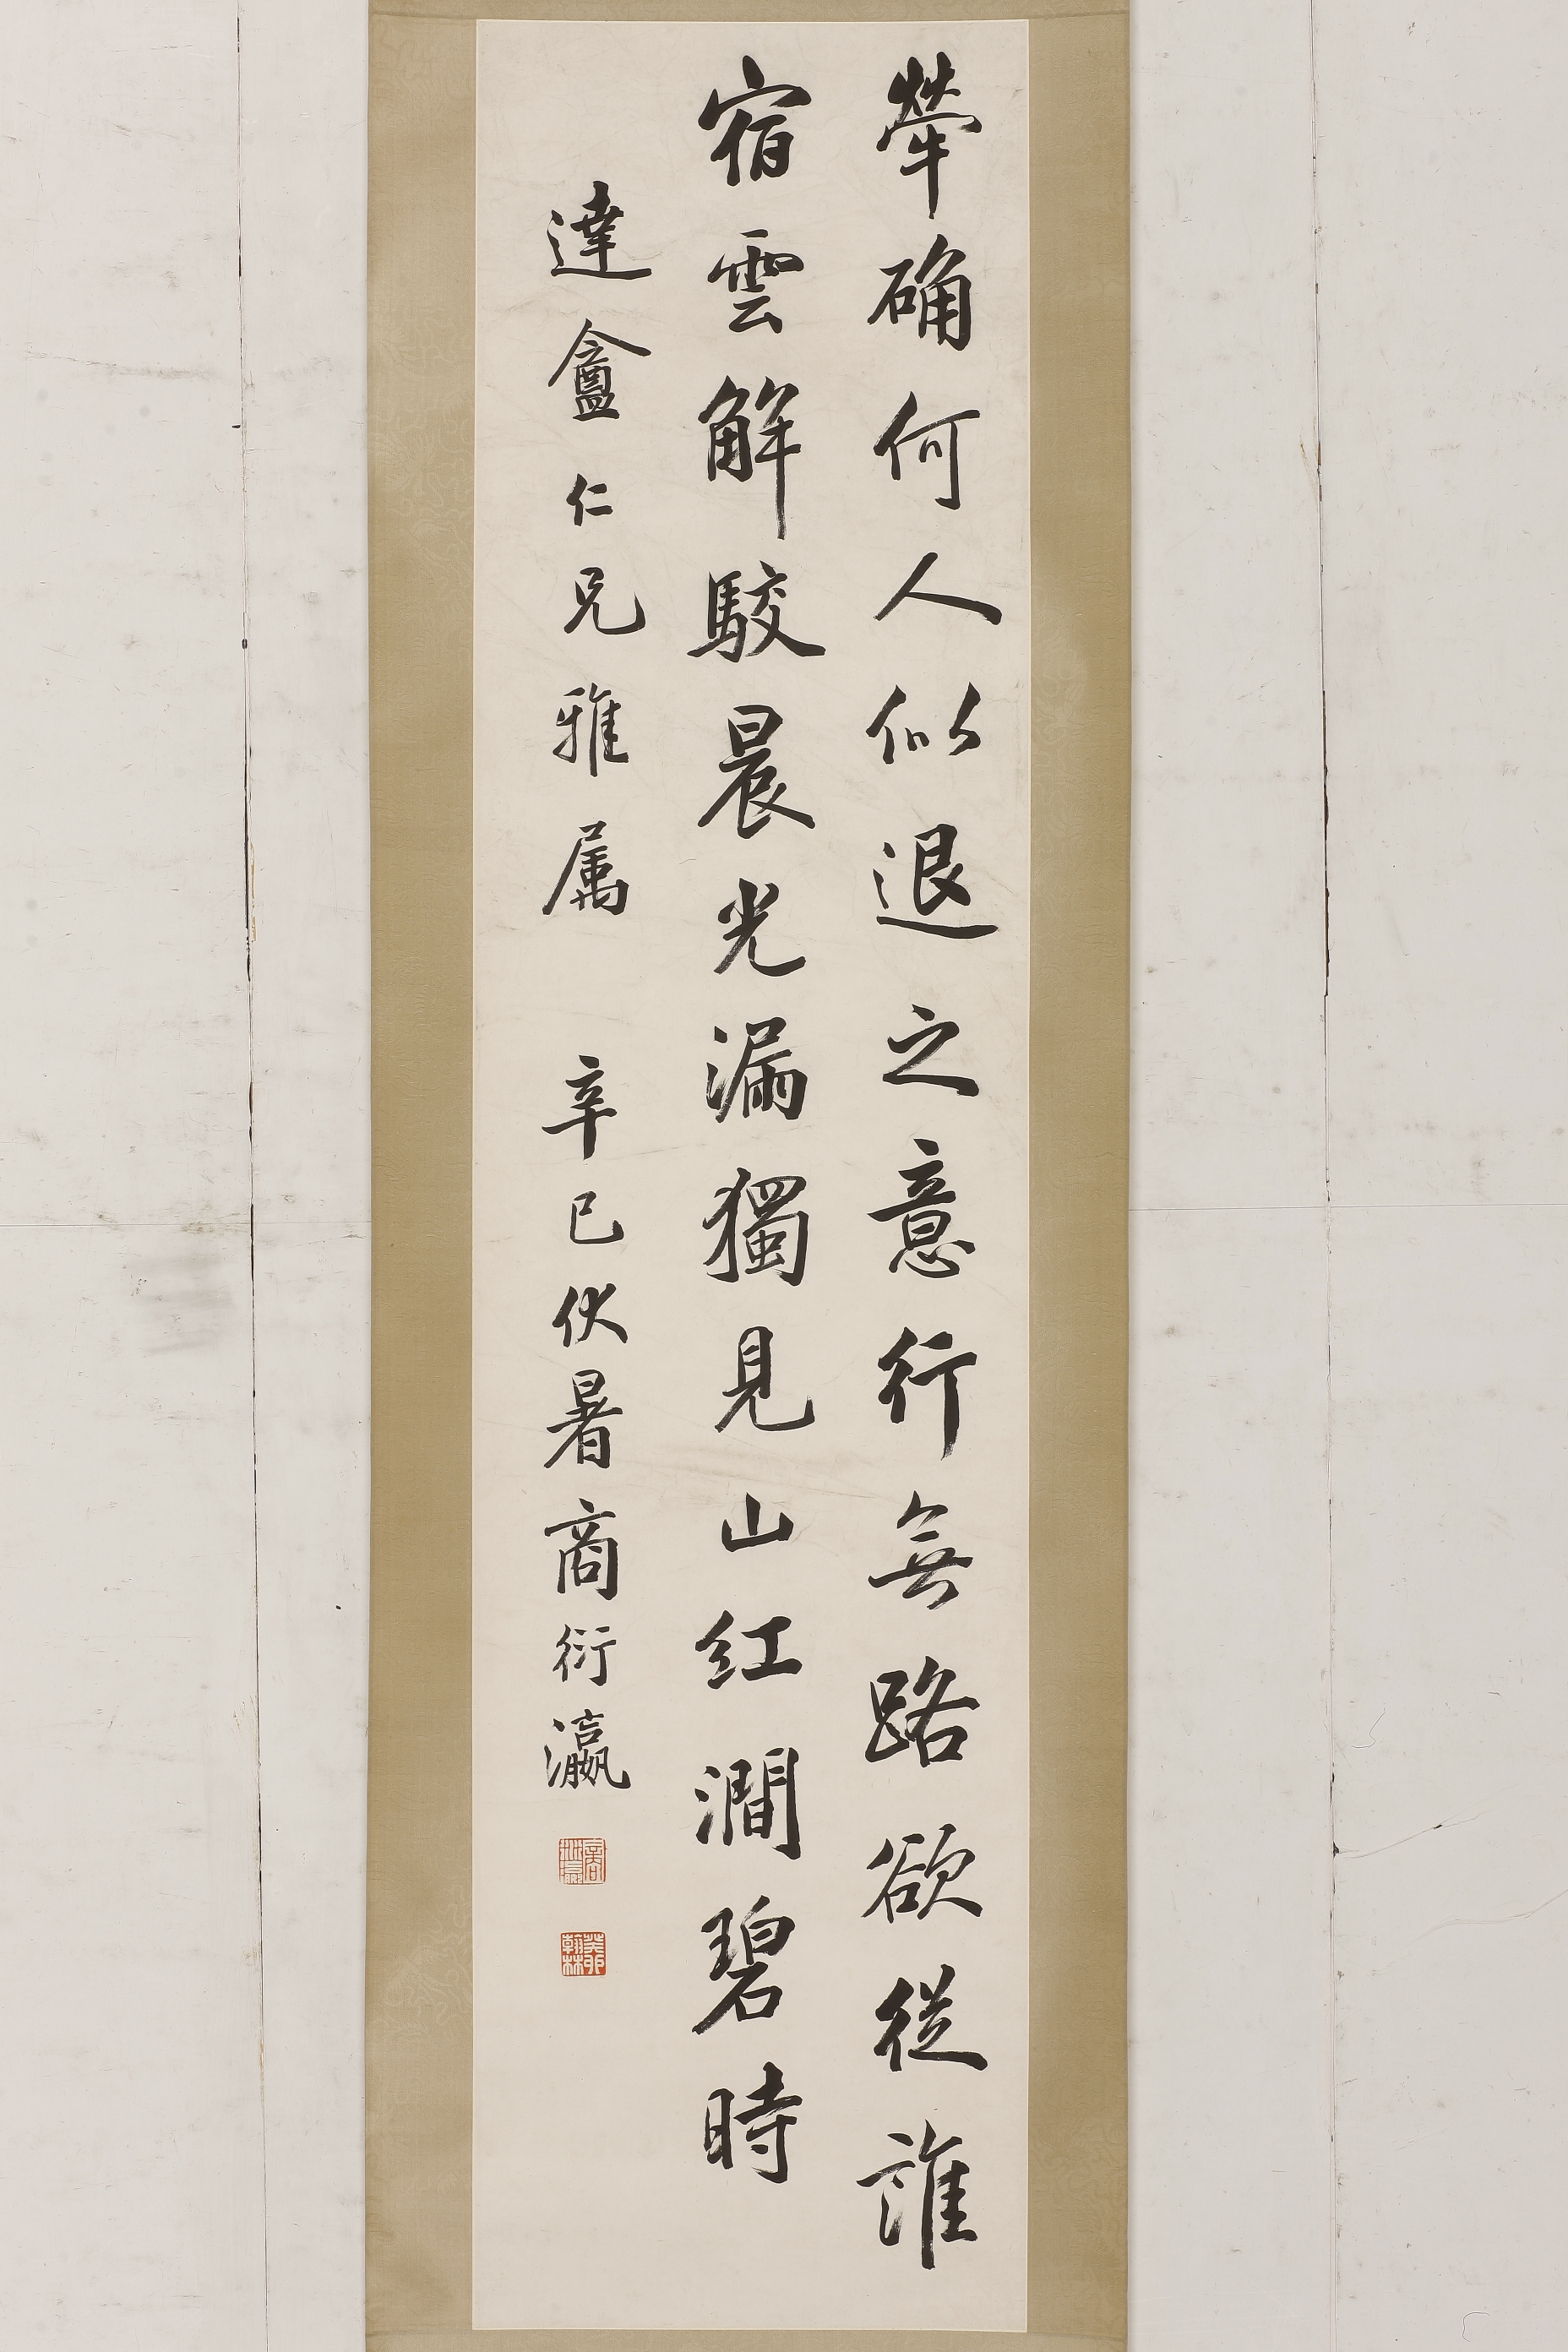 犖确何人似退之意行無路欲從誰
宿雲解駮晨光漏獨見山紅澗碧時
達盦仁兄雅属 辛巳伏暑商衍瀛
商衍瀛
癸卯翰林